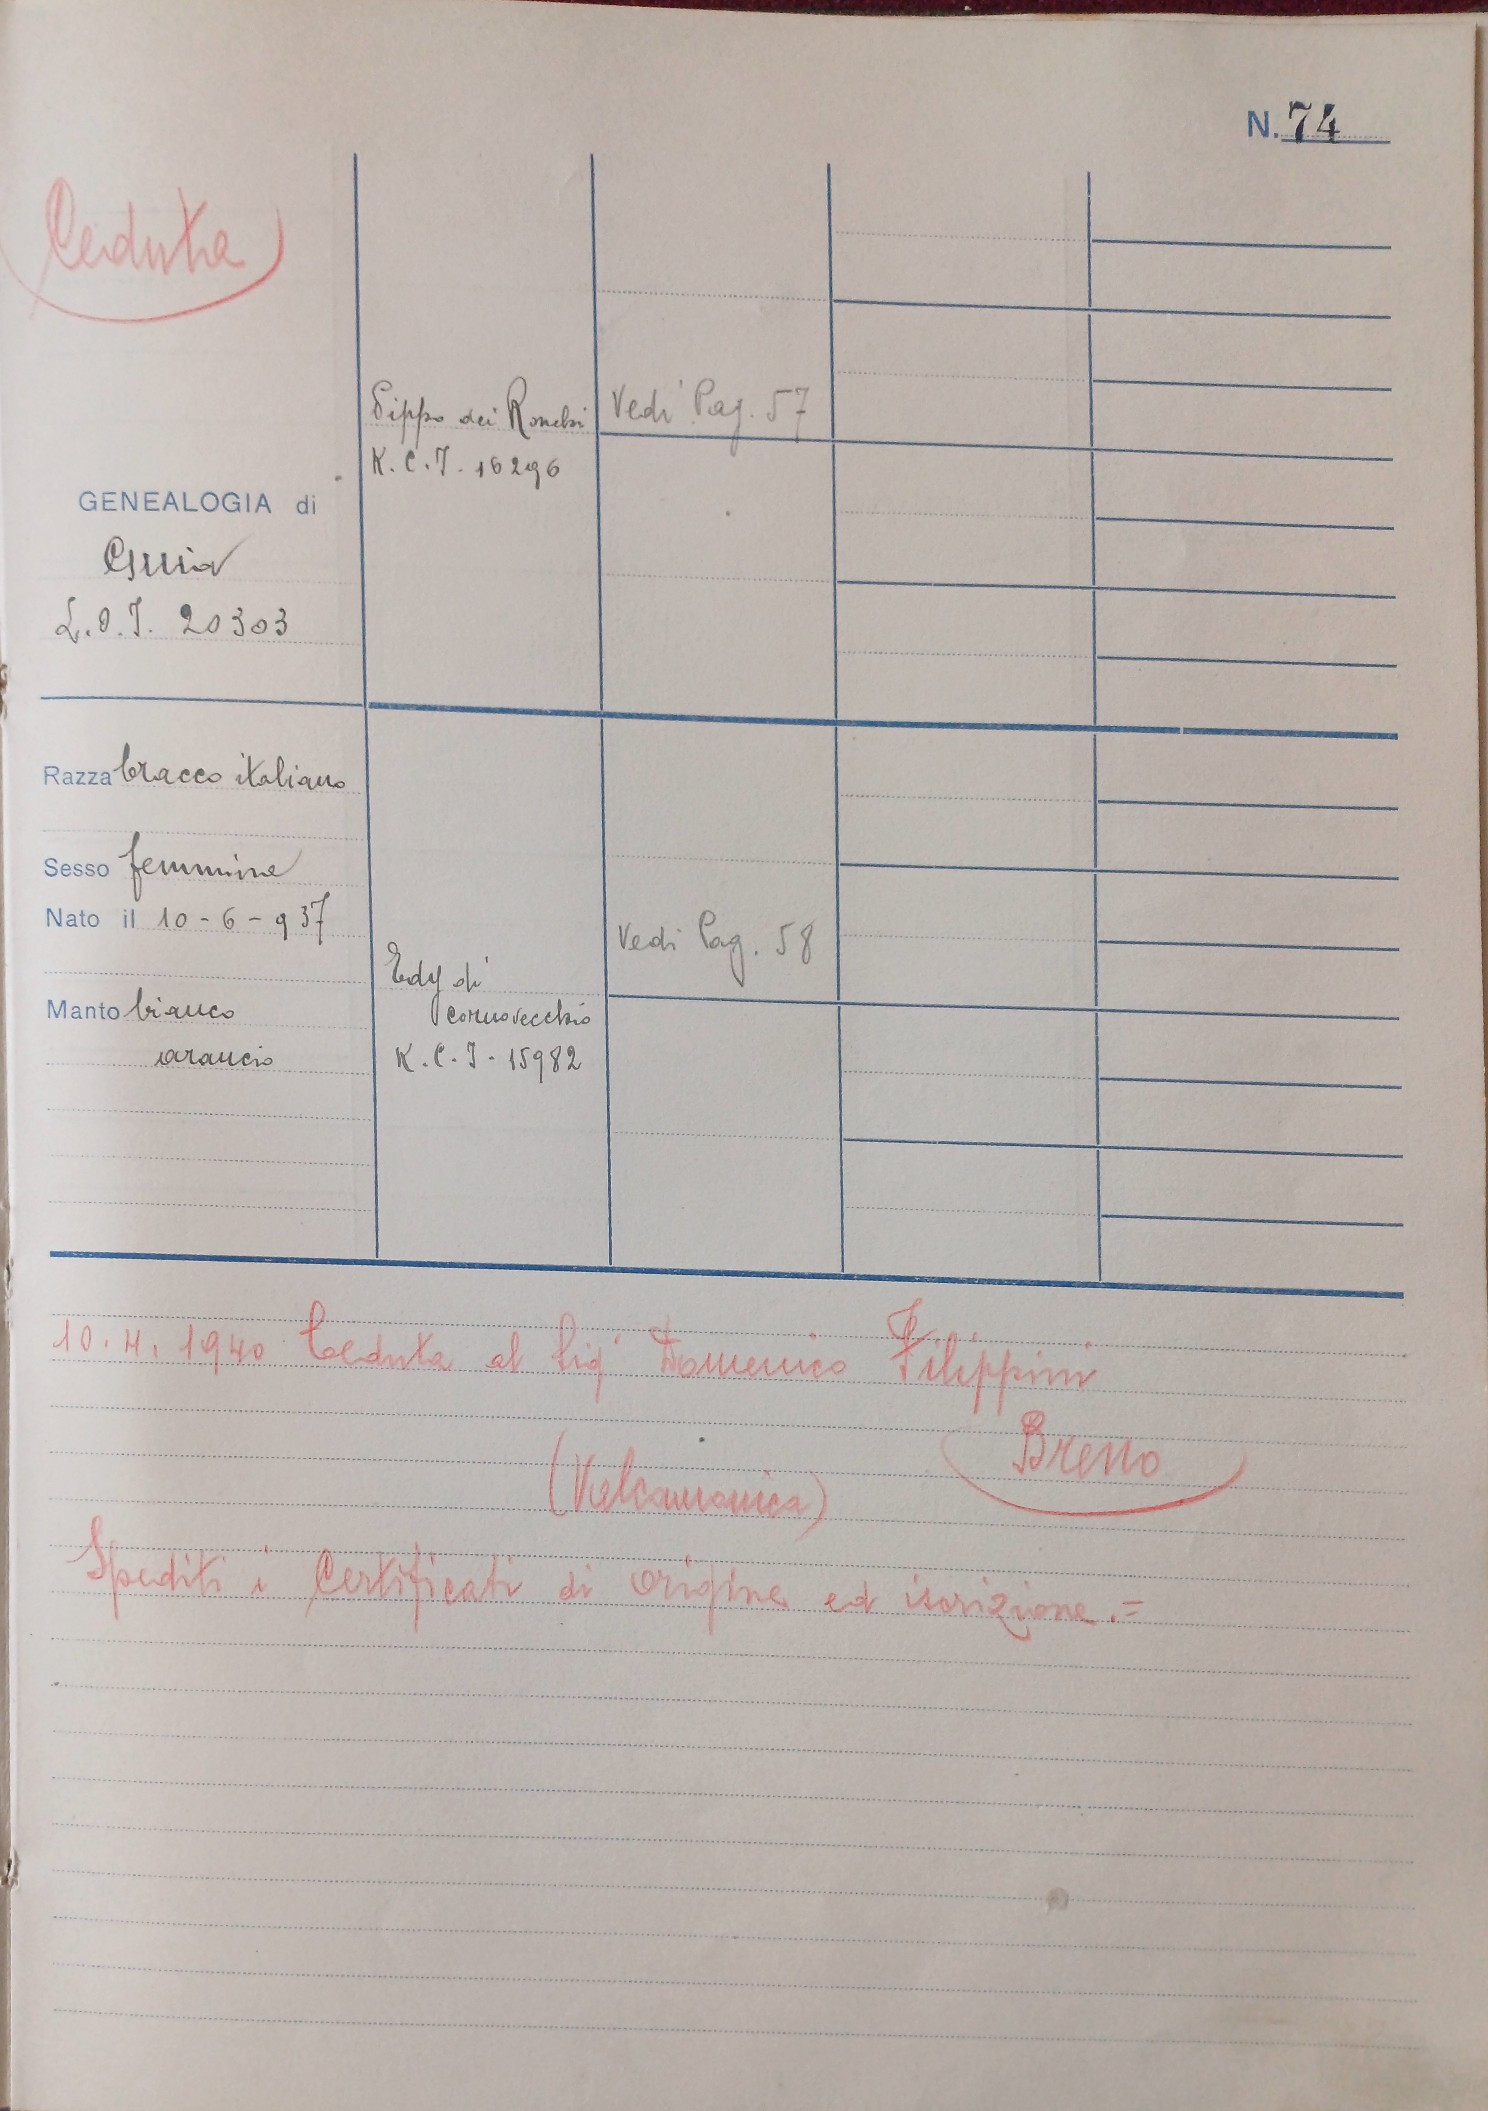 N. 74
Ceduta
Pippo dei Ronchi
K.C.I. 16296
Vedi Pag. 57
GENEALOGIA di
L.O.I. 20303
Razza bracco italiano
Sesso femmina
Nato il 10-6-937
Manto bianco
arancio
Edy di
cornovecchio
K.C.I. 15982
Vedi Pag. 58
10.4.1940 Ceduta al Sig. Domenico Filippini
Breno
(Valcamonica)
Spediti i Certificati di origine ed iscrizione.=